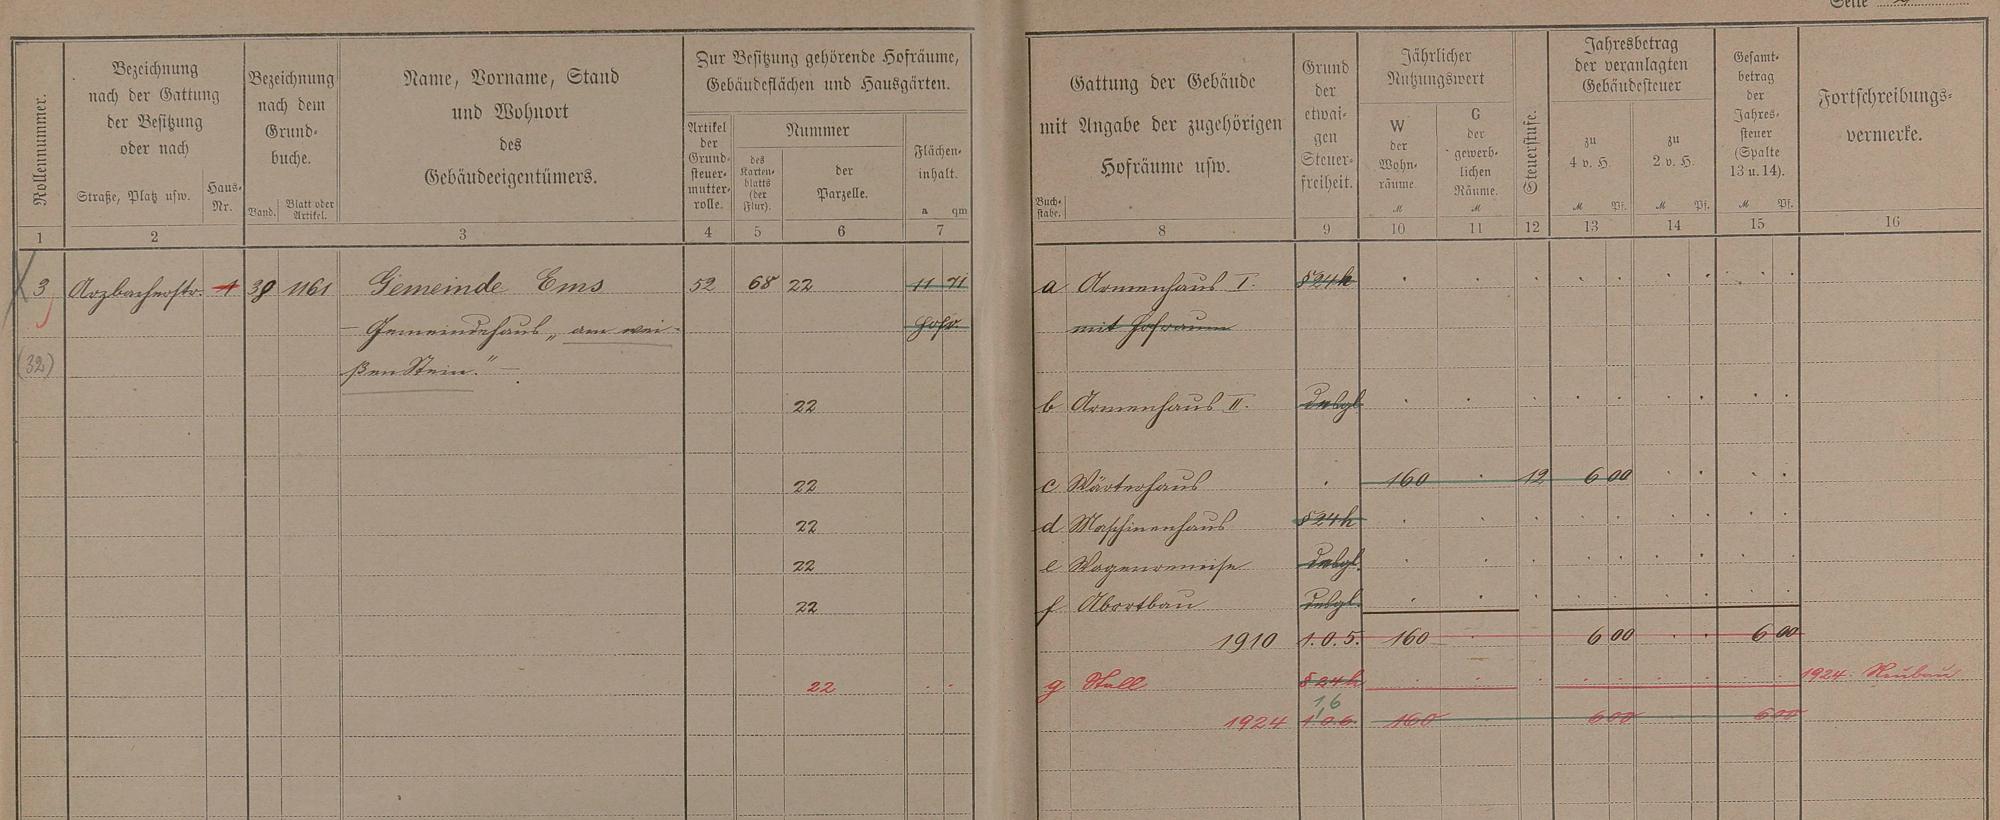 Seite
Rollennummer.
Bezeichnung
nach der Gattung
der Besitzung
oder nach
Straße, Platz usw.
Haus-
Nr.
Bezeichnung
nach dem
Grund-
buche.
Band.
Blatt oder
Artikel.
Name, Vorname, Stand
und Wohnort
des
Gebäudeeigentümers.
Zur Besitzung gehörende Hofräume,
Gebäudeflächen und Hausgärten.
Artikel
der
Grund-
steuer-
mutter-
rolle.
Nummer
des
Karten-
blatts
(der
Flur).
der
Parzelle.
Flächen-
inhalt.
a qm
Buch-
stabe.
Gattung der Gebäude
mit Angabe der zugehörigen
Hofräume usw.
Grund
der
etwai-
gen
Steuer-
freiheit.
Jährlicher
Nutzungswert
W
der
Wohn-
räume.
M
G
der
gewerb-
lichen
Räume.
M
Steuerstufe.
Jahresbetrag
der veranlagten
Gebäudesteuer
zu
4 v. H.
M Pf.
zu
2 v. H.
M Pf.
Gesamt-
betrag
der
Jahres-
steuer
(Spalte
13 u. 14).
M Pf.
Fortschreibungs-
vermerke.
1 2 3 4 5 6 7 8 9 10 11 12 13 14 15 16
3 Arzbacherstr. 1 38 1161 Gemeinde Ems 52 68 22 11 71 a Armenhaus I. § 24k
— Gemeindehaus „am wei- Hofr. mit Hofraum
(32) ßen Stein." —
22 b Armenhaus II. desgl.
22 c Wärterhaus 160 12 6 00
22 d Maschinenhaus § 24k
22 e Wagenremise desgl.
22 f Abortbau desgl.
1910 1.0.5. 160 6 00 6 00
22 g Stall § 24k 1924 Neubau
1,6
1924 1 0 6. 160 6 00 6 00